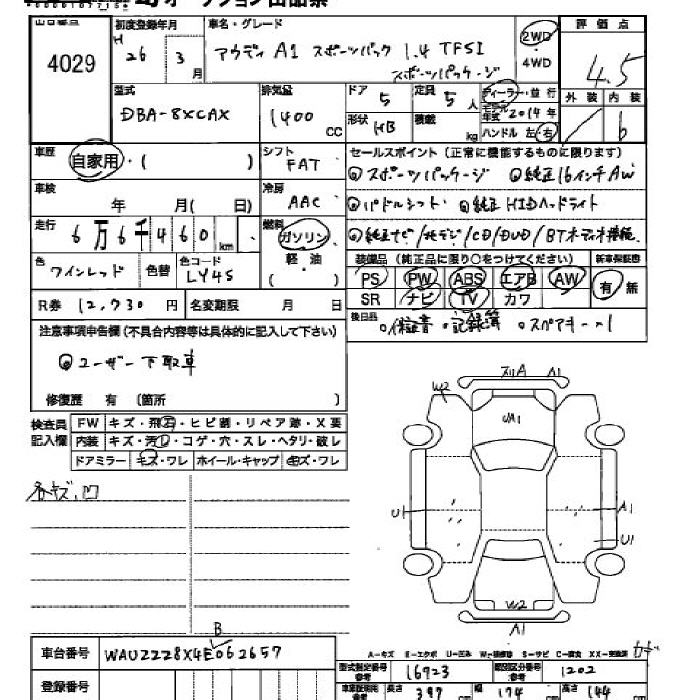 オークション出品票
出品番号 4029
初度登録年月 H 26 3月
車名・グレード アウディ A1 スポーツバック 1.4 TFSI
スポーツパッケージ
2WD・4WD
評価点 4.5
外装 内装 b
型式 DBA-8XCAX
排気量 1400 CC
ドア 5 形状 HB
定員 5人 積載 kg
ディーラー・並行
モデル年式 2014年
ハンドル 左・右
車歴 自家用・( )
シフト FAT
セールスポイント(正常に機能するものに限ります)
◎スポーツパッケージ ◎純正16インチAW
車検 年 月( 日)
冷房 AAC
◎パドルシフト ◎純正HIDヘッドライト
走行 6万6千460km
燃料 ガソリン・軽・油( )
◎純正ナビ/地デジ/CD/DVD/BTオーディオ機能
色 ワインレッド 色替 色コード LY4S
装備品(純正品に限り○をつけてください) 新車保証書
PS PW ABS エアB AW 有・無
SR ナビ TV カワ
R券 12,730円 名変期限 月 日
後日品 ○保証書 ○記録簿 ○スペアキー1
注意事項申告欄(不具合内容等は具体的に記入して下さい)
◎ユーザー下取車
修復歴 有(箇所 )
検査員記入欄
FW キズ・飛石・ヒビ割・リペア跡・X要
内装 キズ・汚レ・コゲ・穴・スレ・ヘタリ・破レ
ドアミラー キズ・ワレ ホイール・キャップ キズ・ワレ
各キズ、凹
W2 A1
U1 A1
U1
W2
A1
A-キズ E-エクボ U-凹み W-補修跡 S-サビ C-腐食 XX-交換済
車台番号 WAUZZZ8X4EB062657
型式指定番号 参考 16923 類別区分番号 参考 1202
登録番号
長さ 397 cm 幅 174 cm 高さ 144